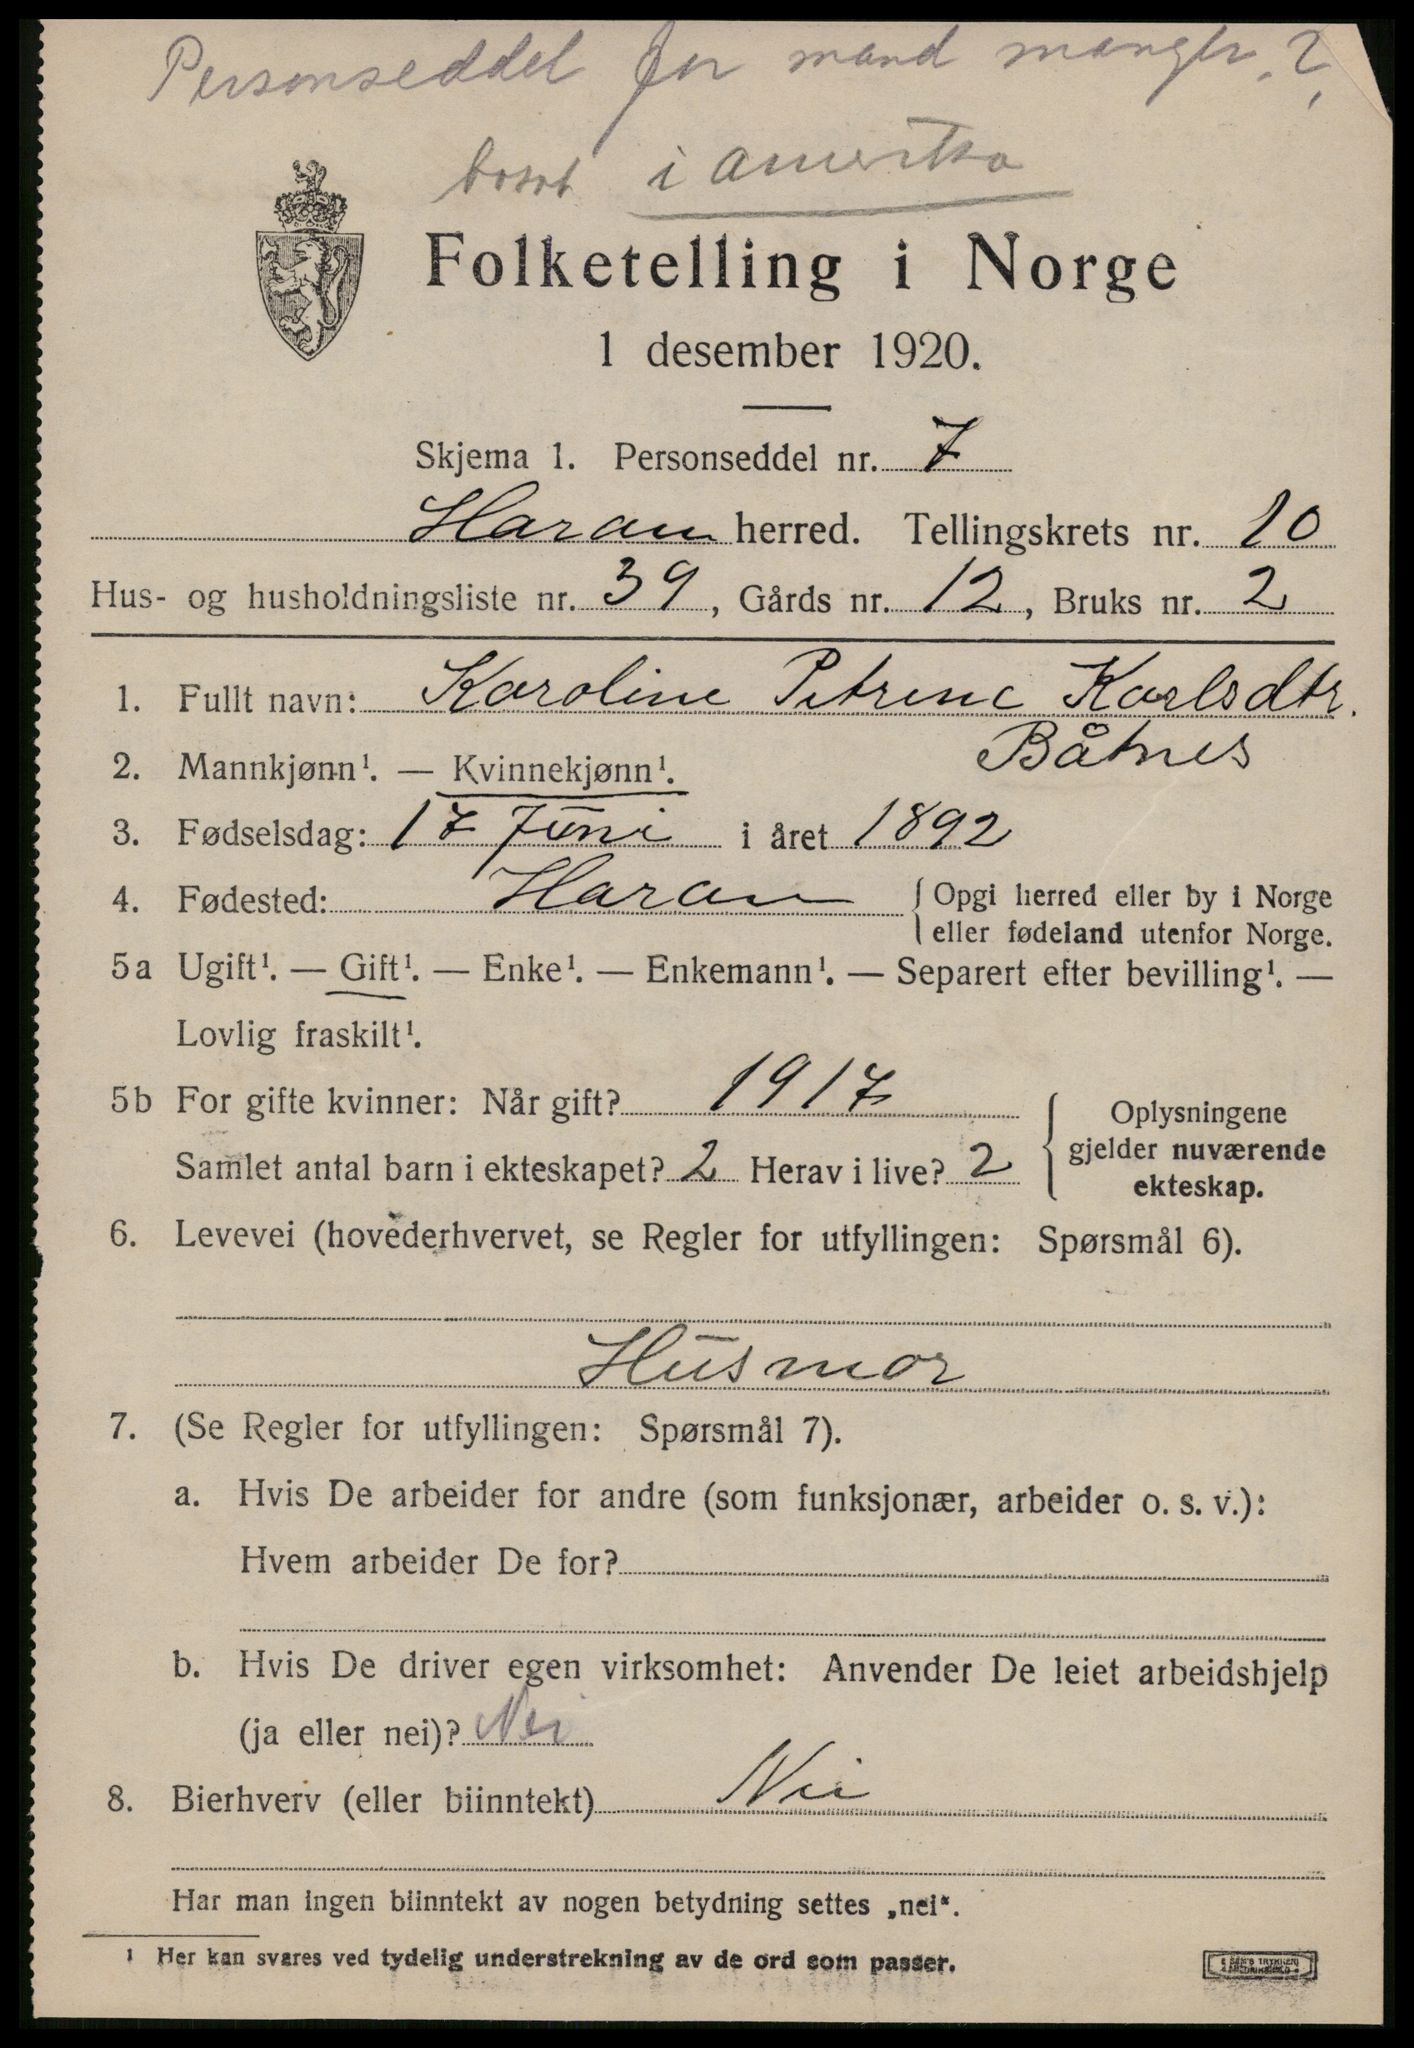 Personseddel for mand mangler. ?
bosat i amerika
Folketelling i Norge
1 desember 1920.
Skjema 1. Personseddel nr. 7
Haram herred. Tellingskrets nr. 10
Hus- og husholdningsliste nr. 39, Gårds nr. 12, Bruks nr. 2
1. Fullt navn: Karoline Petrine Karlsdtr.
Båtnes
2. Mannkjønn¹. — Kvinnekjønn¹.
3. Fødselsdag: 17 Juni i året 1892
4. Fødested: Haram { Opgi herred eller by i Norge
eller fødeland utenfor Norge.
5a Ugift¹. — Gift¹. — Enke¹. — Enkemann¹. — Separert efter bevilling¹. —
Lovlig fraskilt¹.
5b For gifte kvinner: Når gift? 1917
Samlet antal barn i ekteskapet? 2 Herav i live? 2
{ Oplysningene
gjelder nuværende
ekteskap.
6. Levevei (hovederhvervet, se Regler for utfyllingen: Spørsmål 6).
Husmor
7. (Se Regler for utfyllingen: Spørsmål 7).
a. Hvis De arbeider for andre (som funksjonær, arbeider o. s. v.):
Hvem arbeider De for?
b. Hvis De driver egen virksomhet: Anvender De leiet arbeidshjelp
(ja eller nei)? Nei
8. Bierhverv (eller biinntekt) Nei
Har man ingen biinntekt av nogen betydning settes „nei“.
¹ Her kan svares ved tydelig understrekning av de ord som passer.